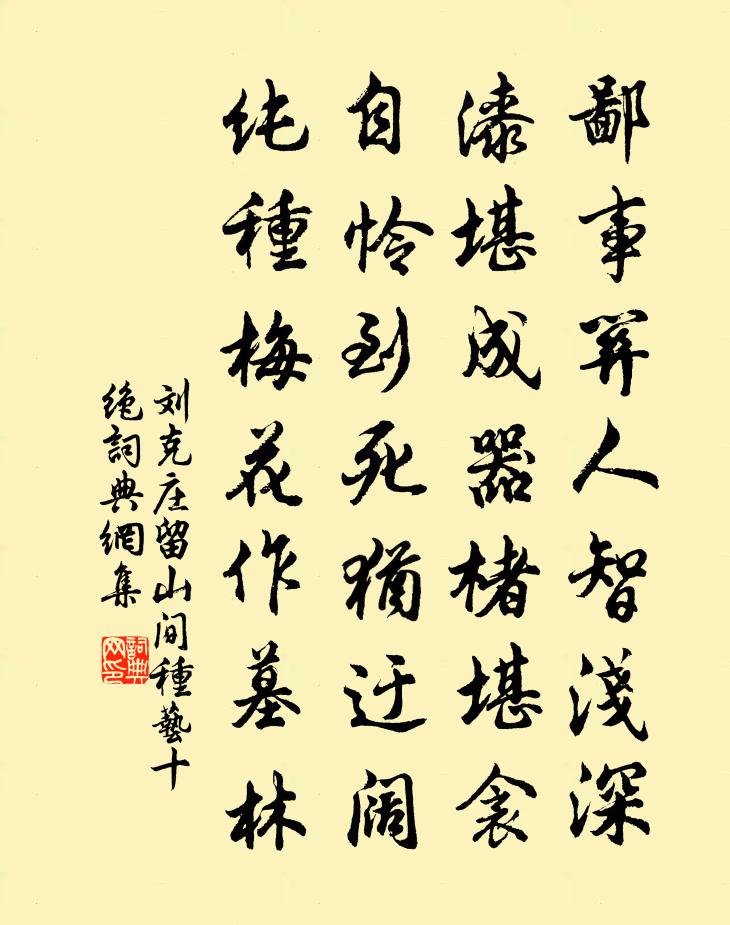 鄙事関人智淺深
漆堪成器楮堪衾
自怜到死猶迂阔
纯種梅花作墓林
刘克庄留山间種藝十
绝詞典網集
詞典
网印